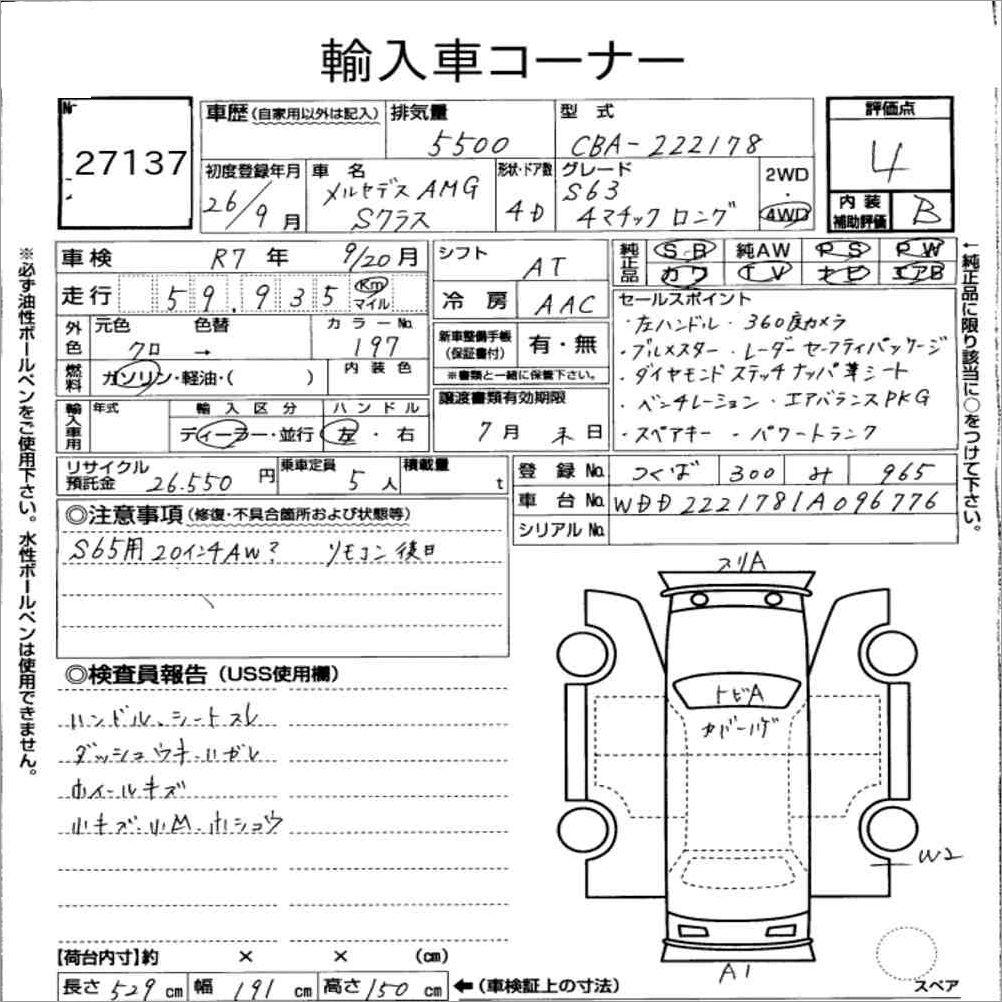 輸入車コーナー
№ 27137
車歴(自家用以外は記入) 排気量 5500 型式 CBA-222178
評価点 4
内装補助評価 B
初度登録年月 26/9月 車名 メルセデスAMG Sクラス 形状・ドア数 4D グレード S63 4マチック ロング 2WD・4WD
車検 R7年 9/20月 シフト AT 純正品 S・R 純AW PS PW カワ TV ナビ エアB
走行 59,935 Km マイル 冷房 AAC
外色 元色 クロ 色替 → カラーNo. 197 内装色
新車整備手帳(保証書付) 有・無
※書類と一緒に保管下さい。
燃料 ガソリン・軽油・( )
輸入車用 年式 輸入区分 ディーラー・並行 ハンドル 左・右
譲渡書類有効期限 7月末日
セールスポイント
・左ハンドル ・360度カメラ
・ブルメスター ・レーダーセーフティパッケージ
・ダイヤモンドステッチナッパ革シート
・ベンチレーション ・エアバランスPKG
・スペアキー ・パワートランク
リサイクル預託金 26.550円 乗車定員 5人 積載量 t
登録No. つくば 300 み 965
車台No. WDD2221781A096776
シリアルNo.
◎注意事項(修復・不具合箇所および状態等)
S65用20インチAW? リモコン後日
◎検査員報告(USS使用欄)
ハンドル、シートスレ
ダッシュウキ・ハガレ
ホイールキズ
小キズ・小凹・ホショウ
スリA
トビA
カバーハゲ
W2
A1
スペア
【荷台内寸】約 × × (cm)
長さ 529 cm 幅 191 cm 高さ 150 cm ←(車検証上の寸法)
※必ず油性ボールペンをご使用下さい。水性ボールペンは使用できません。
←純正品に限り該当に○をつけて下さい。